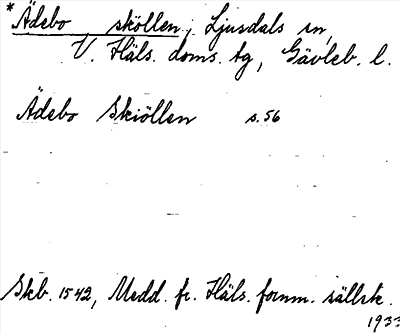 * Ädebo sköllen, Ljusdals sn,
V. Häls. doms. tg, Gävleb. l.
Ädebo Skiöllen s. 56
Skb. 1542, Medd. fr. Häls. fornm. sällsk.
1933